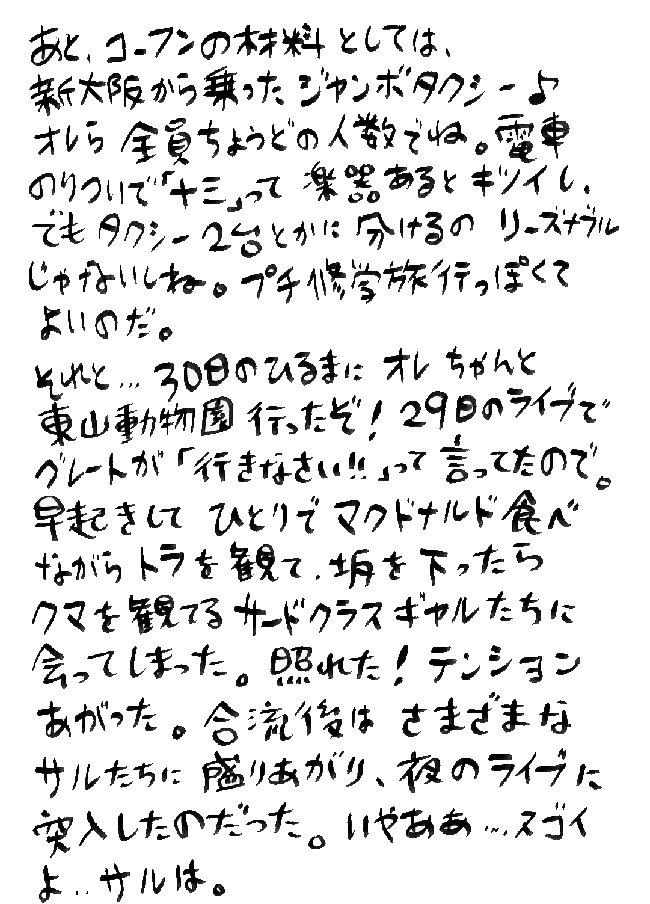 あと、コーフンの材料としては、
新大阪から乗ったジャンボタクシー♪
オレら全員ちょうどの人数でね。電車
のりついで「十三」って楽器あるとキツイし、
でもタクシー2台とかに分けるのリーズナブル
じゃないしね。プチ修学旅行っぽくて
よいのだ。
それと…30日のひるまにオレちゃんと
東山動物園行ったぞ!29日のライブで
グレートが「行きなさい!!」って言ってたので。
早起きしてひとりでマクドナルド食べ
ながらトラを観て、坂を下ったら
クマを観てるサードクラスギャルたちに
会ってしまった。照れた!テンション
あがった。合流後はさまざまな
サルたちに盛りあがり、夜のライブに
突入したのだった。いやああ…スゴイ
よ..サルは。